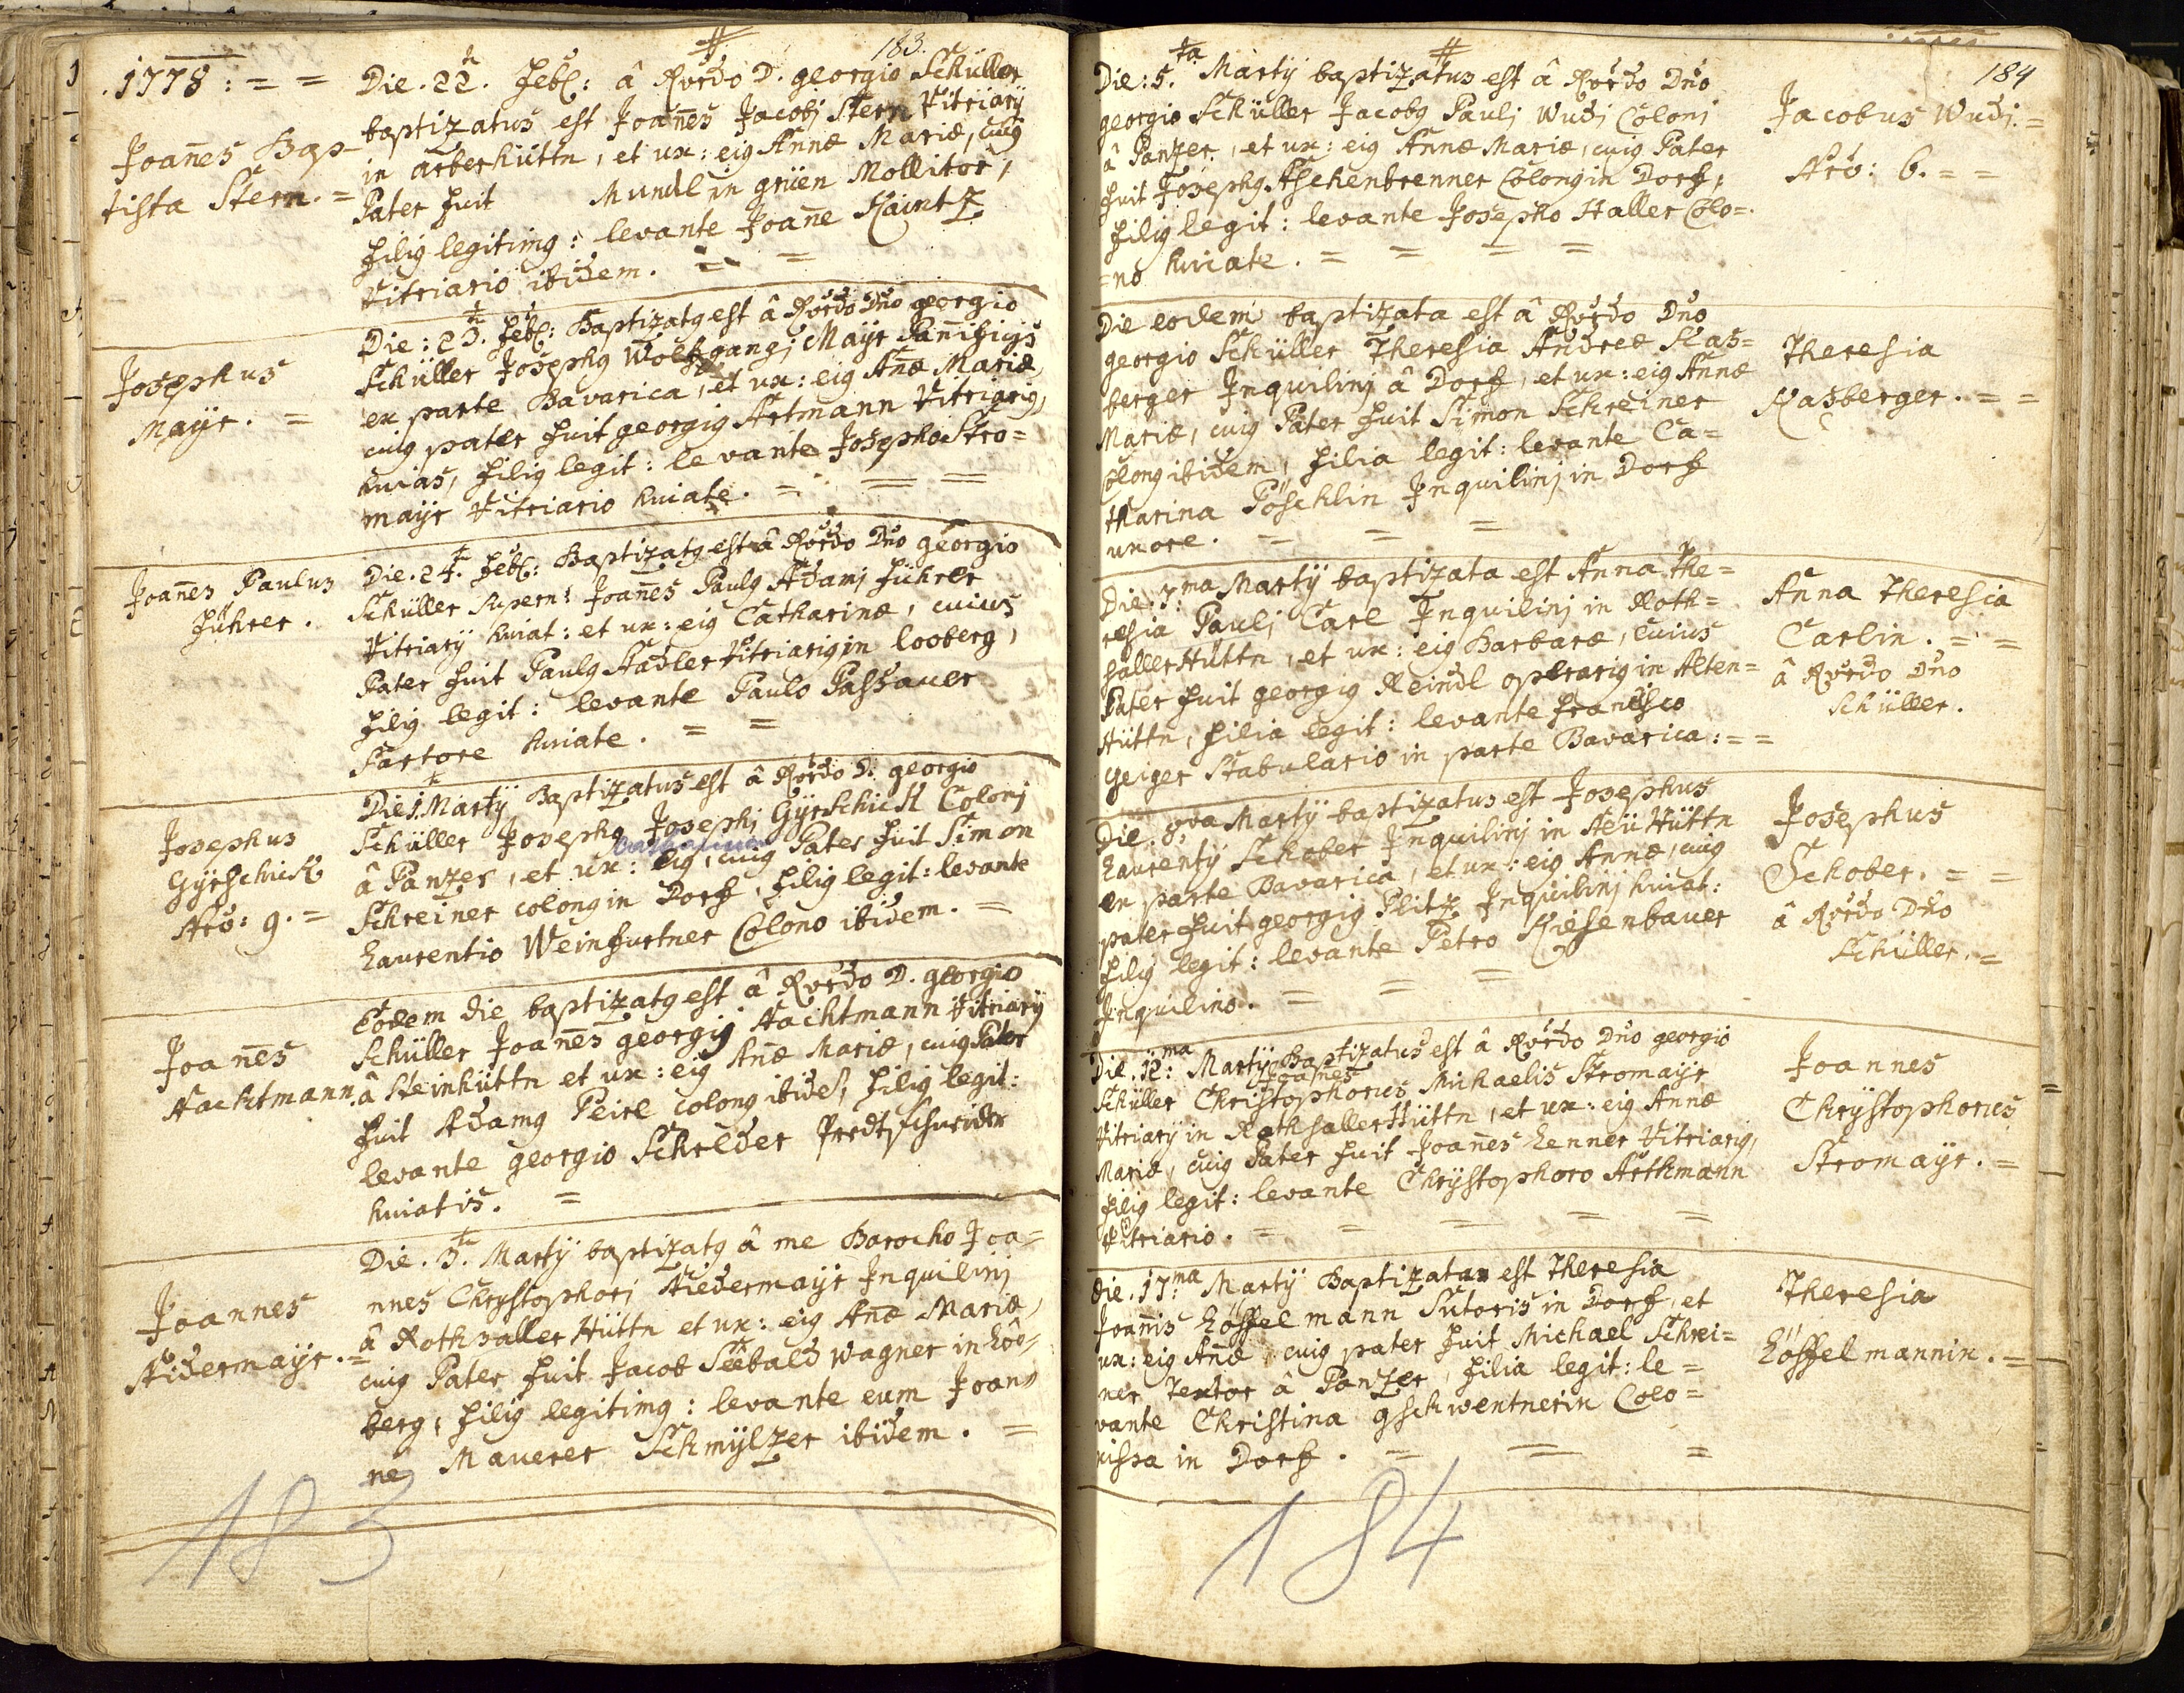 183.
.1778 : = =
Joañes Bap-
tista Stern. =
Die. 22. Feb: â Rvrdo D. georgio Schüller
baptizatus est Joañes Jacobj Stern Vitriarÿ
in arberhüttn, et ux: eig Annæ Mariæ, cuig
Pater fuit Mundl in grüen Mollitor,
filig legitimg: levante Joañe Kaintz
Vitriario ibidem. = =
Josephus
Mayr. =
Die: 23. Feb: Baptizatg est â Rvrdo Dño georgio
Schüller Josephg Wolfgangj Mayr Pañificijs
ex parte Bavarica, et ux: eig Añæ Mariæ
cuig pater fuit georgig Artmann Vitriarig,
huias, filig legit: levante Josepho Stro=
mayr Vitriario huiate. = = =
Joañes Paulus
Führer.
Die. 24. Feb: Baptizatg est â Rvrdo Dño georgio
Schüller supern: Joañes Paulg Adamj Führer
Vitriarÿ huiat: et ux: eig Catharinæ, cuius
Pater fuit Paulg Stadler Vitriarig in looberg,
filig legit: levante Paulo Passauer
Sartore huiate. = =
Josephus
Gÿrschick
Nro: 9. =
Die 1. Martÿ Baptizatus est â Rvrdo D. georgio
Schüller Josephg Josephj Gÿrschick Colonj
Catharinæ
â Panzer, et ux: eig, cuig Pater fuit Simon
Schreiner colong in Dorf, filig legit: levante
Laurentio Weinfurtner Colono ibidem. =
Joañes
Nachtmann.
Eodem die baptizatg est â Rvrdo D. georgio
Schüller Joañes georgij Nachtmann Vitriarÿ
â Steinhüttn et ux: eig Añæ Mariæ, cuig Pater
fuit Adamg Peirl colong ibide, filig legit:
levante georgio Schreder Predtschneider
huiatis. =
Joannes
Nidermaÿr. =
Die. 3. Martÿ baptizatg â me Barocho Joa=
nnes Chrÿstophorj Niedermaÿr Inquilinj
â Rothsaller Hüttn et ux: eig Añæ Mariæ,
cuig Pater fuit Jacob Seebald wagner in Löo=
berg, filig legitimg: levante eum Joan=
ne Maurer Schmÿlzer ibidem. =
183
184
Die: 5.ta Martÿ baptizatus est â Rvrdo Dño
georgio Schüller Jacobg Paulj Wudj Colonj
â Panzer, et ux: eig Annæ Mariæ, cuig Pater
fuit Josephg Aschenbrenner Colong in Dorf,
filig legit: levante Josepho Haller Colo=
=no huiate. = = = =
Jacobus Wudj. =
Nro: 6. = =
Die eodem baptizata est â Rvrdo Dño
georgio Schüller Theresia Andreæ Kas=
berger Inquilinj â Dorf, et ux: eig Annæ
Mariæ, cuig Pater fuit Simon Schreiner
Colong ibidem, filia legit: levante Ca=
tharina Pöschlin Inquilinj in Dorf
uxore. = = =
Theresia
Kasberger. = =
Die: 7.ma Martÿ baptizata est Anna The=
resia Paulj Carl Inquilinj in Roth=
saller Hüttn, et ux: eig Barbaræ, Cuius
Pater fuit georgig Reindl operarig in Alten=
Hüttn, filia legit: levante francisco
geiger Stabulario in parte Bavarica: = =
Añna Theresia
Carlin. = =
â Rvrdo Dño
Schüller.
Die. 8.va Martÿ baptizatus est Josephus
Laurentÿ Schober Inquilinj in Neü Hüttn
ex parte Bavarica, et ux: eig Annæ, cuig
pater fuit georgig Plitz Inquilinj huiat:
filig legit: levante Petro Kiesenbauer
Inquilino. = = =
Josephus
Schober. = =
â Rvrdo Dño
Schüller. =
Die. 12:ma Martÿ Baptizatus est â Rvrdo Dño georgio
Joañes
Schüller Christophorus Michaelis Stromaÿr
Vitriarÿ in Rothsaller Hüttn, et ux: eig Annæ
Mariæ, cuig Pater fuit Joañes Lenner Vitriarig,
filig legit: levante Chrÿstophoro Arthmann
Vitriario. = = = = =
Joannes
Chrÿstophorus
Stromaÿr. =
Die. 17:ma Martÿ Baptizata est Theresia
Joañis Löffelmann Sutoris in Dorf, et
ux: eig Añæ cuig pater fuit Michael Schrei=
ner Textor â Panzer, filia legit: le=
vante Christina gschwentnerin Colo=
nissa in Dorf. = = =
Theresia
Löffelmannin. =
184